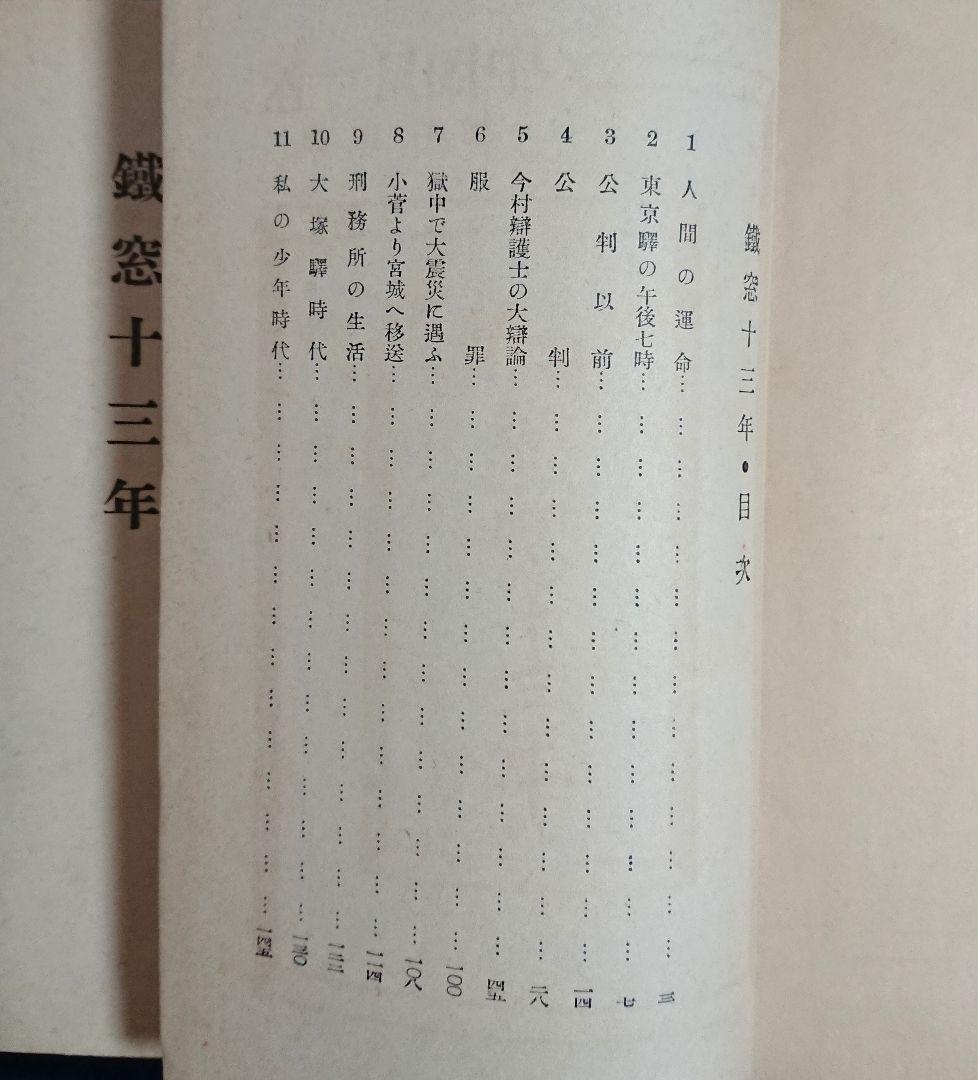 鐵窓十三年・目次
1 人間の運命……三
2 東京驛の午後七時……七
3 公判以前……一四
4 公判……二八
5 今村辯護士の大辯論……四五
6 服罪……一〇〇
7 獄中で大震災に遇ふ……一〇八
8 小菅より宮城へ移送……一一四
9 刑務所の生活……一二二
10 大塚驛時代……一三〇
11 私の少年時代……一四五
鐵窓十三年